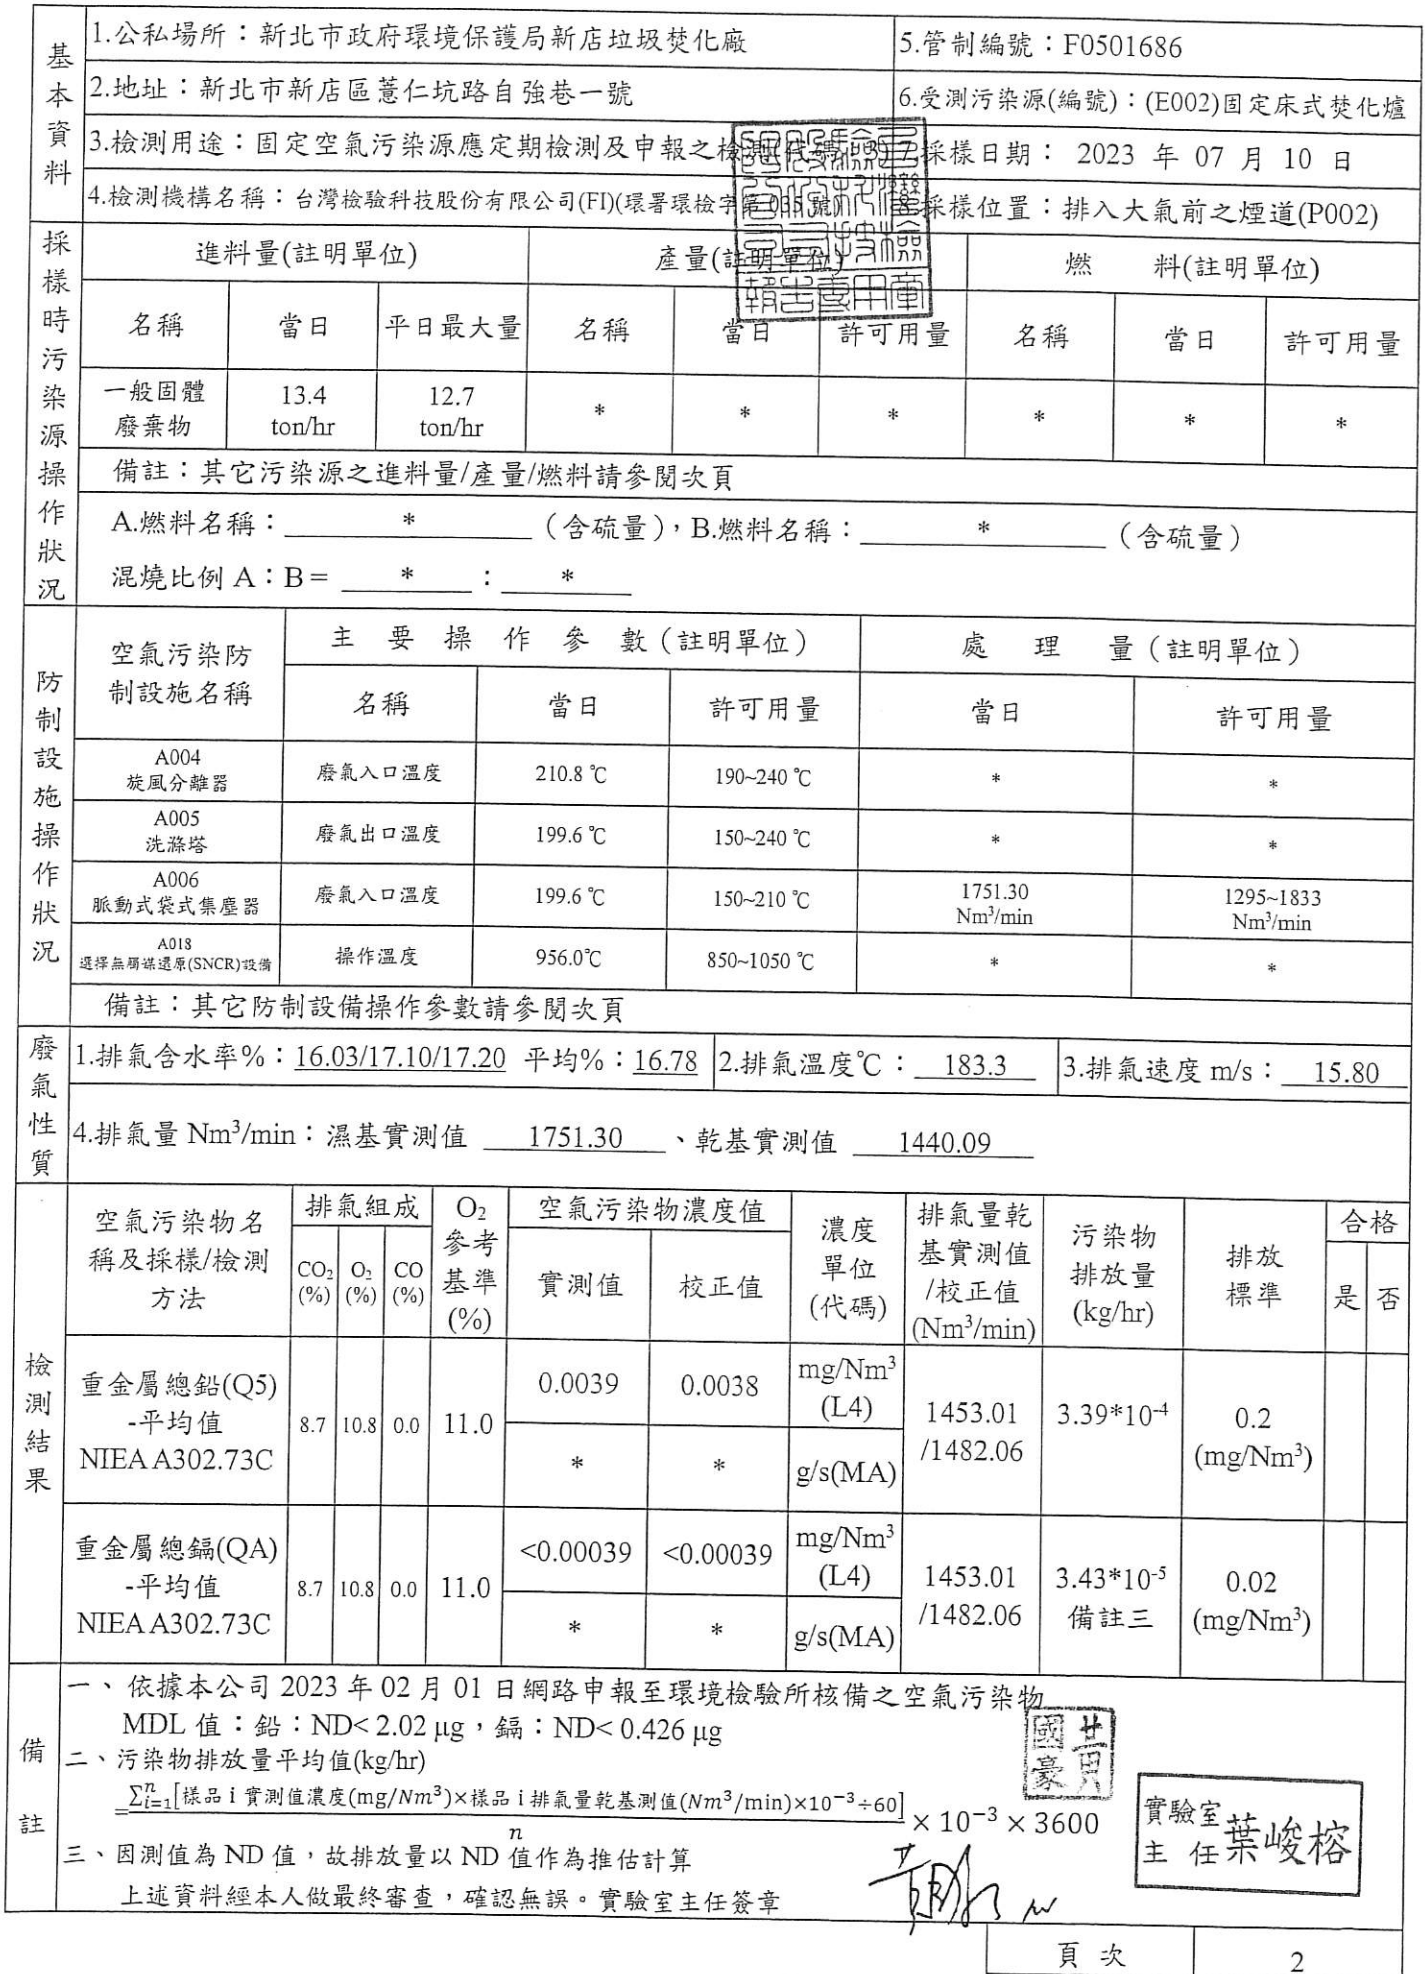 基本資料
1.公私場所：新北市政府環境保護局新店垃圾焚化廠
5.管制編號：F0501686
2.地址：新北市新店區薏仁坑路自強巷一號
6.受測污染源(編號)：(E002)固定床式焚化爐
3.檢測用途：固定空氣污染源應定期檢測及申報之檢測
7.採樣日期： 2023 年 07 月 10 日
4.檢測機構名稱：台灣檢驗科技股份有限公司(FI)(環署環檢字第 035 號)
8.採樣位置：排入大氣前之煙道(P002)
採樣時污染源操作狀況
進料量(註明單位) 產量(註明單位) 燃 料(註明單位)
名稱 當日 平日最大量 名稱 當日 許可用量 名稱 當日 許可用量
一般固體廢棄物 13.4 ton/hr 12.7 ton/hr * * * * * *
備註：其它污染源之進料量/產量/燃料請參閱次頁
A.燃料名稱： * （含硫量），B.燃料名稱： * （含硫量）
混燒比例 A：B = * : *
防制設施操作狀況
空氣污染防制設施名稱 主 要 操 作 參 數（註明單位） 處 理 量（註明單位）
名稱 當日 許可用量 當日 許可用量
A004 旋風分離器 廢氣入口溫度 210.8 ℃ 190~240 ℃ * *
A005 洗滌塔 廢氣出口溫度 199.6 ℃ 150~240 ℃ * *
A006 脈動式袋式集塵器 廢氣入口溫度 199.6 ℃ 150~210 ℃ 1751.30 Nm³/min 1295~1833 Nm³/min
A018 選擇無觸媒還原(SNCR)設備 操作溫度 956.0℃ 850~1050 ℃ * *
備註：其它防制設備操作參數請參閱次頁
廢氣性質
1.排氣含水率%：16.03/17.10/17.20 平均%：16.78 2.排氣溫度℃： 183.3 3.排氣速度 m/s： 15.80
4.排氣量 Nm³/min：濕基實測值 1751.30 、乾基實測值 1440.09
檢測結果
空氣污染物名稱及採樣/檢測方法 排氣組成 O₂參考基準(%) 空氣污染物濃度值 濃度單位(代碼) 排氣量乾基實測值/校正值(Nm³/min) 污染物排放量(kg/hr) 排放標準 合格
CO₂(%) O₂(%) CO(%) 實測值 校正值 是 否
重金屬總鉛(Q5)-平均值 NIEA A302.73C 8.7 10.8 0.0 11.0 0.0039 0.0038 mg/Nm³(L4) 1453.01/1482.06 3.39*10⁻⁴ 0.2(mg/Nm³)
* * g/s(MA)
重金屬總鎘(QA)-平均值 NIEA A302.73C 8.7 10.8 0.0 11.0 <0.00039 <0.00039 mg/Nm³(L4) 1453.01/1482.06 3.43*10⁻⁵ 備註三 0.02(mg/Nm³)
* * g/s(MA)
備註
一、依據本公司 2023 年 02 月 01 日網路申報至環境檢驗所核備之空氣污染物
MDL 值：鉛：ND< 2.02 μg，鎘：ND< 0.426 μg
二、污染物排放量平均值(kg/hr)
=∑ⁿᵢ₌₁[樣品 i 實測值濃度(mg/Nm³)×樣品 i 排氣量乾基測值(Nm³/min)×10⁻³÷60] / n × 10⁻³ × 3600
三、因測值為 ND 值，故排放量以 ND 值作為推估計算
上述資料經本人做最終審查，確認無誤。實驗室主任簽章
黃國豪
實驗室主任葉峻榕
頁 次 2